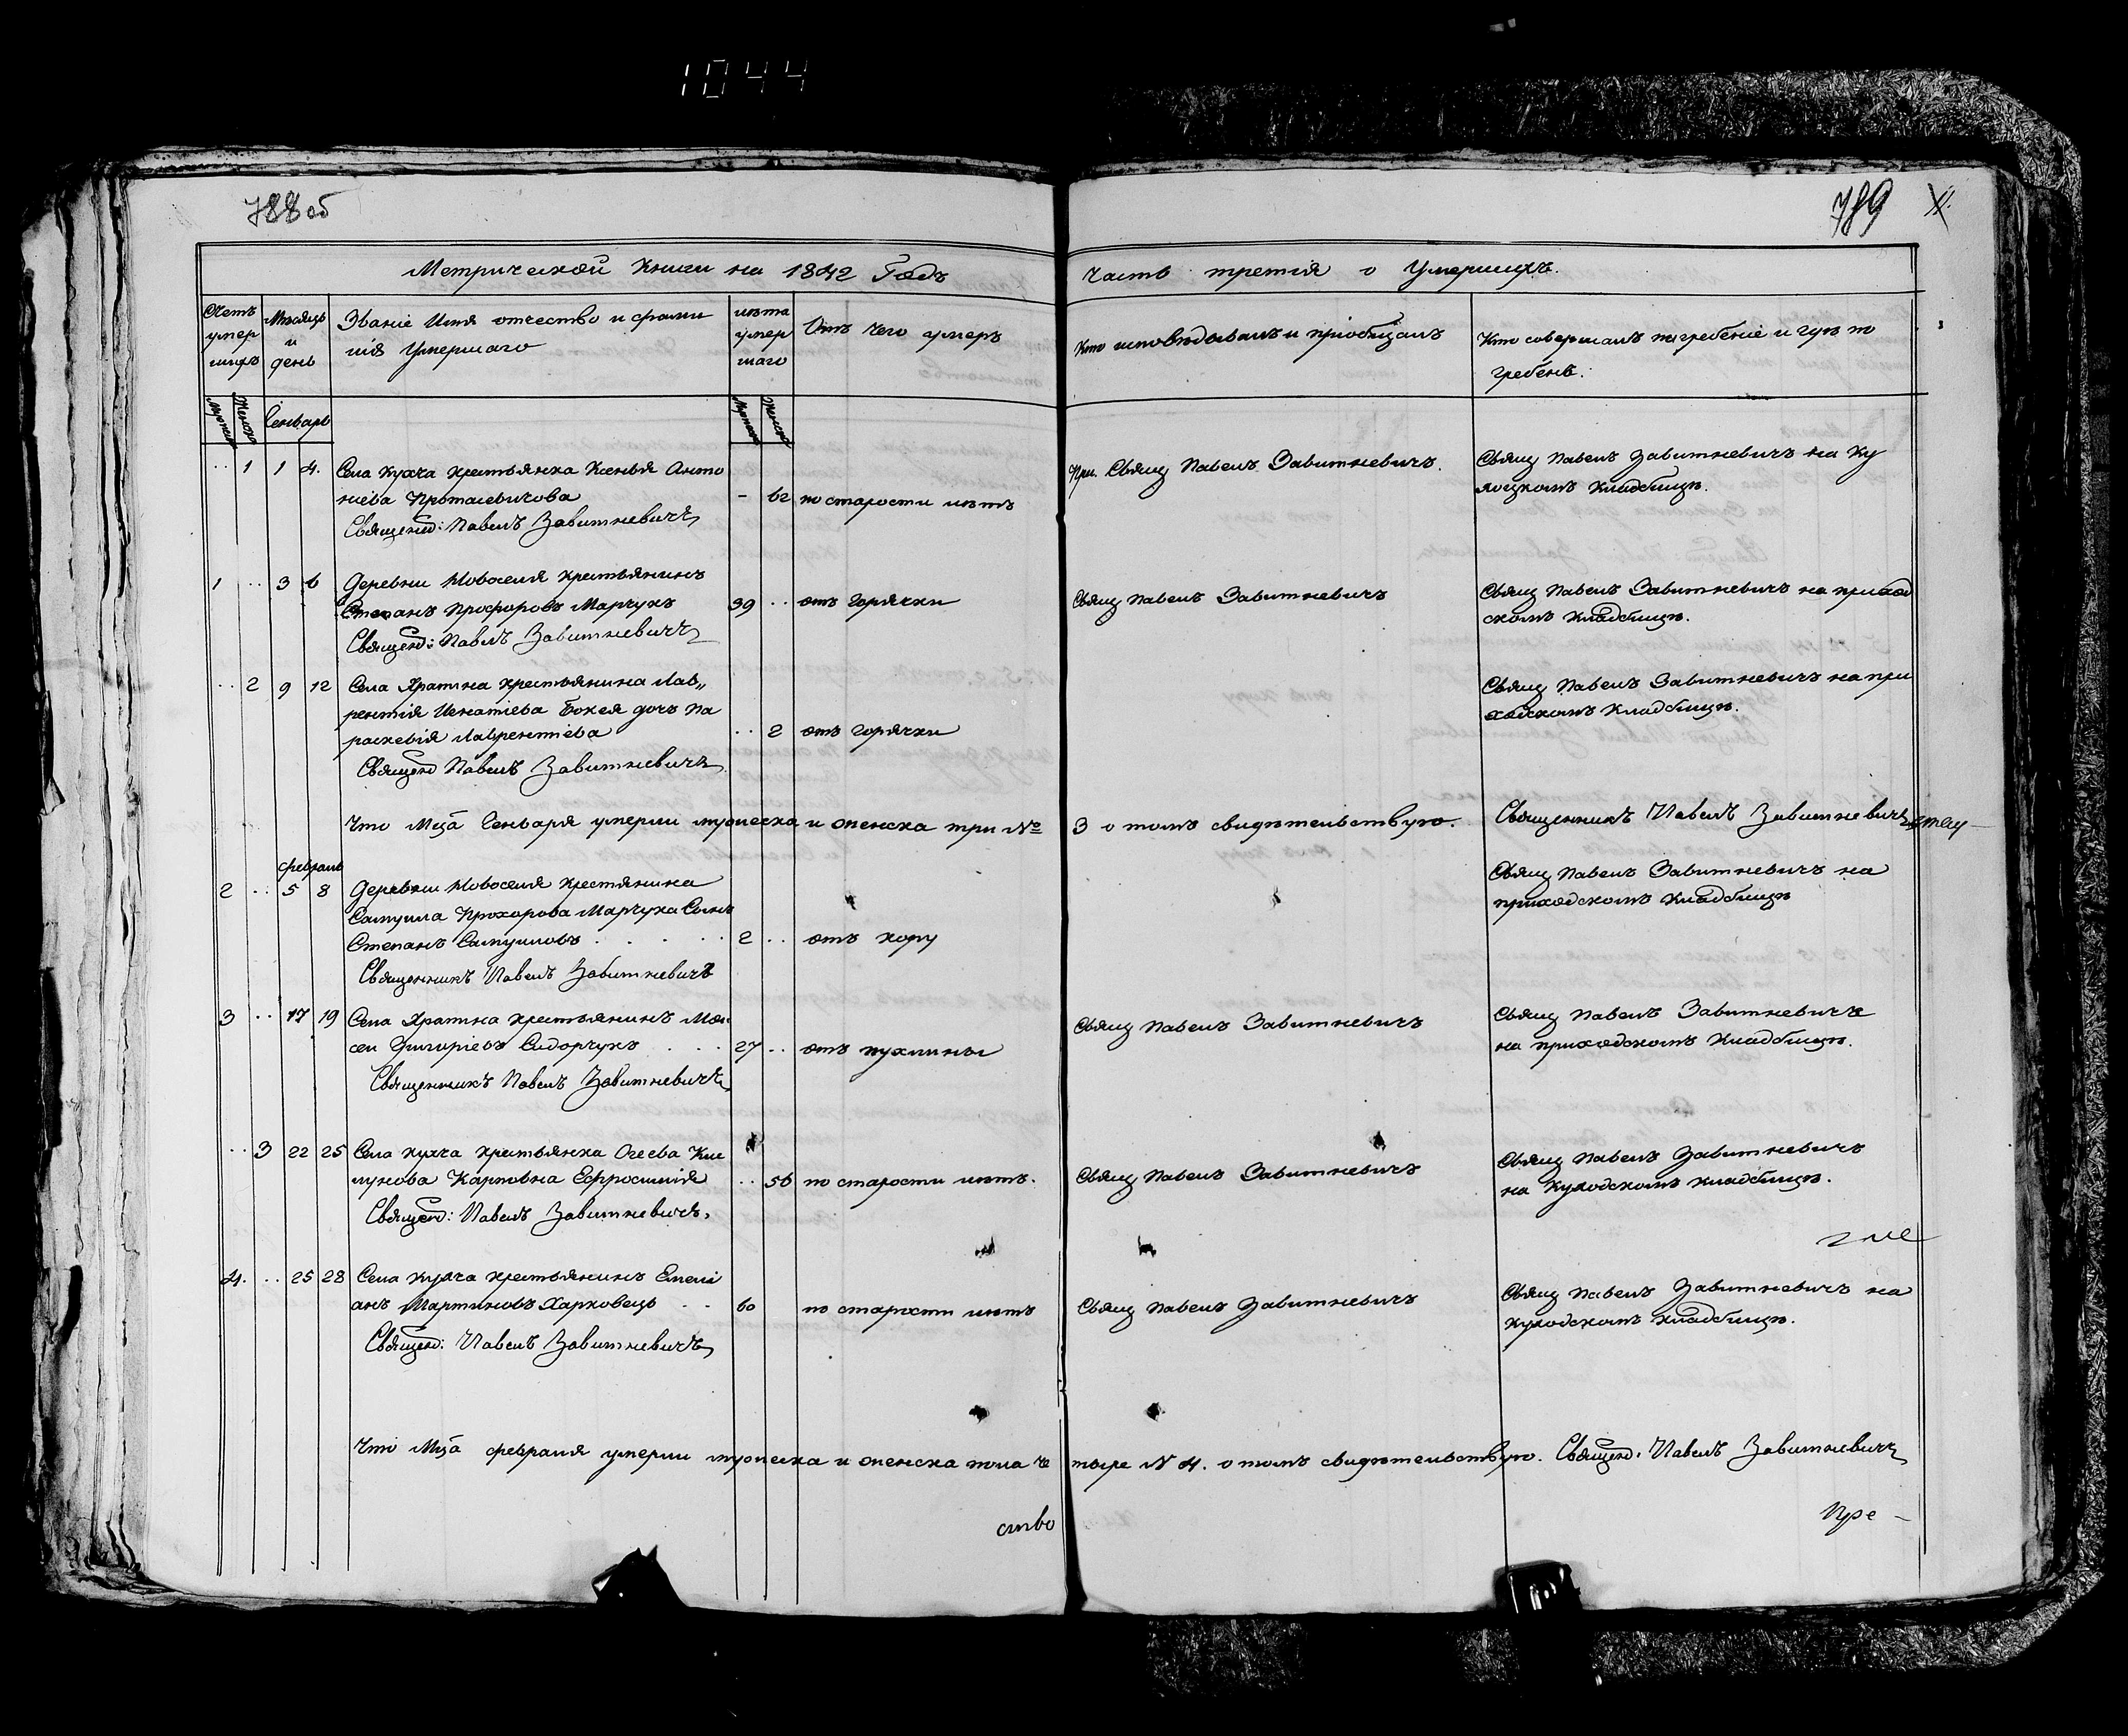 1044
788 об
789
Метрической Книги на 1842 Годъ
Часть третія о Умершихъ.
Счетъ умер шихъ
Мѣсяцъ и день
Званіе Имя отчество и фами
лія Умершаго
лѣта умер шаго
Отъ чего умеръ
Кто исповѣдывалъ и пріобщалъ
Кто совершалъ погребеніе и гдѣ по
гребенъ.
Мужеска Женска
Генварь
Мужеска Женска
.. 1 1 4. Села Кухча крестьянка Ксенья Анто
нѣева Протасевичова - 62 по старости лѣтъ
Священ: Павелъ Завитневичъ
При. Свящ Павелъ Завитневичъ.
Свящ Павелъ Завитневичъ на Ку
хоцкомъ Кладбищѣ.
1 .. 3 6 Деревни Новоселя крестьянинъ
Степанъ Прохоровъ Марчукъ 39 .. отъ горячки
Священ: Павелъ Завитневичъ
Свящ Павелъ Завитневичъ
Свящ Павелъ Завитневичъ на приход
скомъ Кладбищѣ.
.. 2 9 12 Села Храпина крестьянина Лав„
рентія Игнатіева Бокея дочь Па
раскевія Лаврентіева .. 2 отъ горячки
Священ Павелъ Завитневичъ
Свящ Павелъ Завитневичъ на при
хоскомъ Кладбищѣ.
Что Мца Генваря умерли мужеска и женска три №
3 о томъ свидѣтельствую. Священникъ Павелъ Завитневичъ
Февраль
2 .. 5 8 Деревни Новоселя крестянина
Самуила Прохорова Марчука Сынъ
Степанъ Самуиловъ . . . . 2 .. отъ кору
Священникъ Павелъ Завитневичъ
Свящ Павелъ Завитневичъ на
приходскомъ Кладбищѣ
3 .. 17 19 Села Храпина крестьянинъ Мои
сеи Григоріевъ Сидорчукъ . . . 27 .. отъ пухлины
Священникъ Павелъ Завитневичъ
Свящ Павелъ Завитневичъ
Свящ Павелъ Завитневичъ
на приходскомъ Кладбищѣ.
.. 3 22 25 Села кухча крестьянка
Карповна Ефросинія .. 56 по старости лѣтъ.
Священ: Павелъ Завитневичъ.
Свящ Павелъ Завитневичъ
Свящ Павелъ Завитневичъ
на Куходскомъ кладбищѣ.
4. .. 25 28 Села кухча крестьянинъ Емели
анъ Мартиновъ Харковецъ . . 60 по старости лѣтъ
Священ: Павелъ Завитневичъ
Свящ Павелъ Завитневичъ
Свящ Павелъ Завитневичъ на
куходскомъ кладбищѣ.
Что Мца февраля умерли мужеска и женска пола че
тыре № 4. о томъ свидѣтельствую. Священ: Павелъ Завитневичъ
ство
Пре -